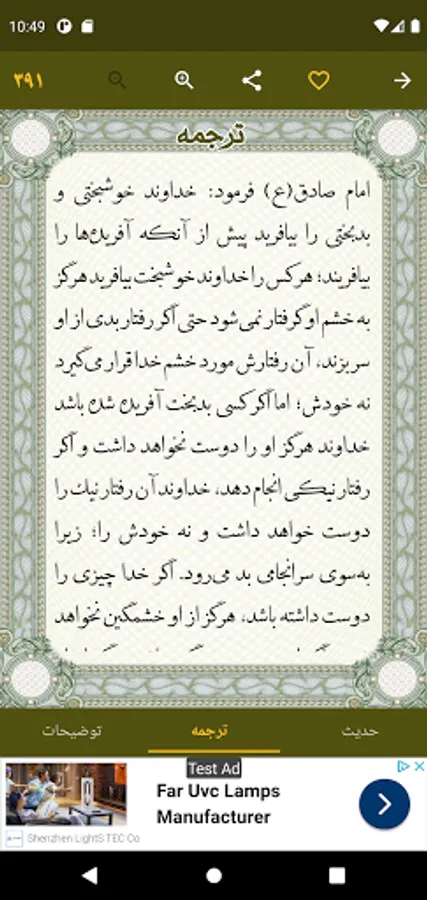 10:49
۳۹۱
ترجمه
امام صادق(ع) فرمود: خداوند خوشبختی و
بدبختی را بیافرید پیش از آنکه آفریده‌ها را
بیافریند؛ هرکس را خداوند خوشبخت بیافرید هرگز
به خشم او گرفتار نمی‌شود حتی اگر رفتار بدی از او
سر بزند، آن رفتارش مورد خشم خدا قرار می‌گیرد
نه خودش؛ اما اگر کسی بدبخت آفریده شده باشد
خداوند هرگز او را دوست نخواهد داشت و اگر
رفتار نیکی انجام دهد، خداوند آن رفتار نیک را
دوست خواهد داشت و نه خودش را؛ زیرا
به‌سوی سرانجامی بد می‌رود. اگر خدا چیزی را
دوست داشته باشد، هرگز از او خشمگین نخواهد
حدیث
ترجمه
توضیحات
Test Ad
Far Uvc Lamps
Manufacturer
Shenzhen LightS TEC Co